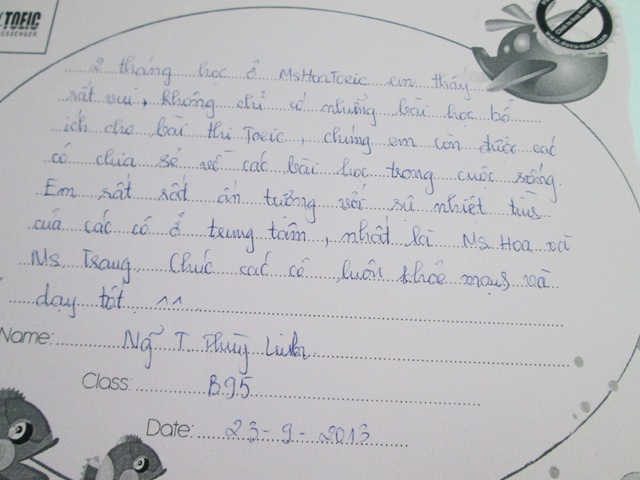 TOEIC
MESSENGER
www.docu-track.com
2 tháng học ở MsHoaToeic em thấy
rất vui, không chỉ có những bài học bổ
ích cho bài thi Toeic, chúng em còn được các
cô chia sẻ về các bài học trong cuộc sống.
Em rất rất ấn tượng với sự nhiệt tình
của các cô ở trung tâm, nhất là Ms Hoa và
Ms Trang. Chúc các cô luôn khỏe mạnh và
dạy tốt ^^
Name: Ng~ T. Thuỳ Linh
Class: B95
Date: 23-9-2013